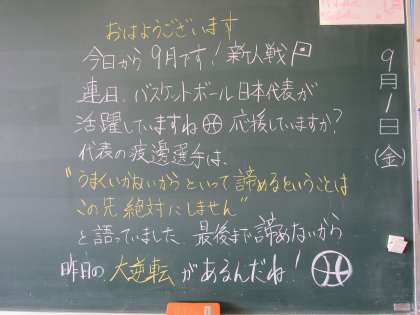 おはようございます
今日から9月です！新人戦
連日、バスケットボール日本代表が
活躍していますね 応援していますか？
代表の渡邊選手は、
"うまくいかないからといって諦めるということは
この先絶対にしません"
と語っていました。最後まで諦めないから
昨日の大逆転があるんだね！
9月1日(金)